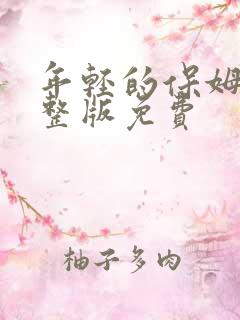 年轻的保姆
整版免费
柚子多肉